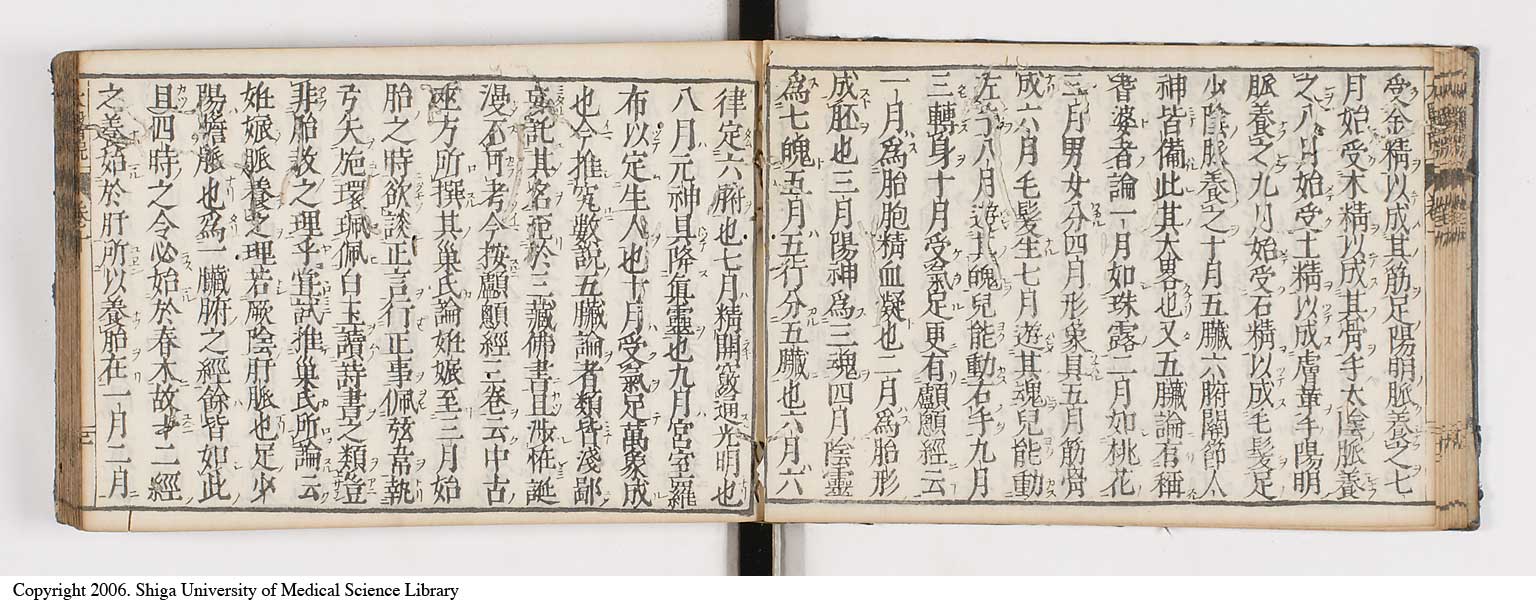 受金精以成其筋足陽明脈養之七
月始受木精以成其骨手太陰脈養
之八月始受土精以成膚革手陽明
脈養之九月始受石精以成毛髮足
少陰脈養之十月五臟六腑關節人
神皆備此其大畧也又五臟論有稱
耆婆者論一月如珠露二月如桃花
三月男女分四月形象具五月筋骨
成六月毛髮生七月遊其魂兒能動
左手八月遊其魄兒能動右手九月
三轉身十月受氣足更有顱顖經云
一月爲胎胞精血凝也二月爲胎形
成胚也三月陽神爲三魂四月陰靈
爲七魄五月五行分五臟也六月六
律定六腑也七月精開竅通光明也
八月元神具降眞靈也九月宮室羅
布以定生人也十月受氣足萬象成
也今推究數說五臟論者類皆淺鄙
妄託其名亞於三藏佛書且涉怪誕
漫不可考今按顱顖經三卷云中古
巫方所撰其巢氏論姙娠至三月始
胎之時欲談正言行正事佩弦吾執
弓矢施環珮佩白玉讀詩書之類豈
非胎教之理乎宜試推巢氏所論云
姙娠脈養之理若厥陰肝脈也足少
陽膽脈也爲一臟腑之經餘皆如此
且四時之令必始於春木故十二經
之養始於肝所以養胎在一月二月
Copyright 2006. Shiga University of Medical Science Library